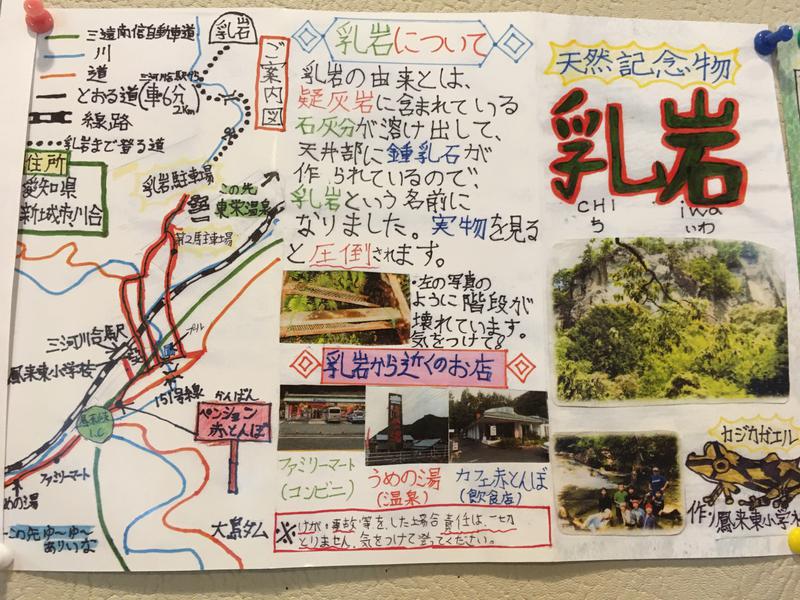 天然記念物
乳岩
CHI iwa
ち いわ
カジカガエル
作り 鳳来東小学校
乳岩について
乳岩の由来とは、
疑灰岩に含まれている
石灰分が溶け出して、
天井部に鍾乳石が
作られているので、
乳岩という名前に
なりました。実物を見る
と圧倒されます。
・左の写真の
ように階段が
壊れています。
気をつけて。
乳岩から近くのお店
ファミリーマート
(コンビニ)
うめの湯
(温泉)
カフェ赤とんぼ
(飲食店)
※けが・事故等をした場合責任は、一切
とりません。気をつけて登ってください。
ご案内図
三遠南信自動車道
川
道
とおる道(車6分 2km)
線路
乳岩まで登る道
住所
愛知県
新城市川合
乳岩
三河川合駅から
乳岩駐車場
この先
東栄温泉
第2駐車場
三河川合駅
鳳来東小学校
プール
151号線
かんばん
ペンション
赤とんぼ
I.C
ファミリーマート
めの湯
この先ゆ〜ゆ〜
ありいな
大島ダム